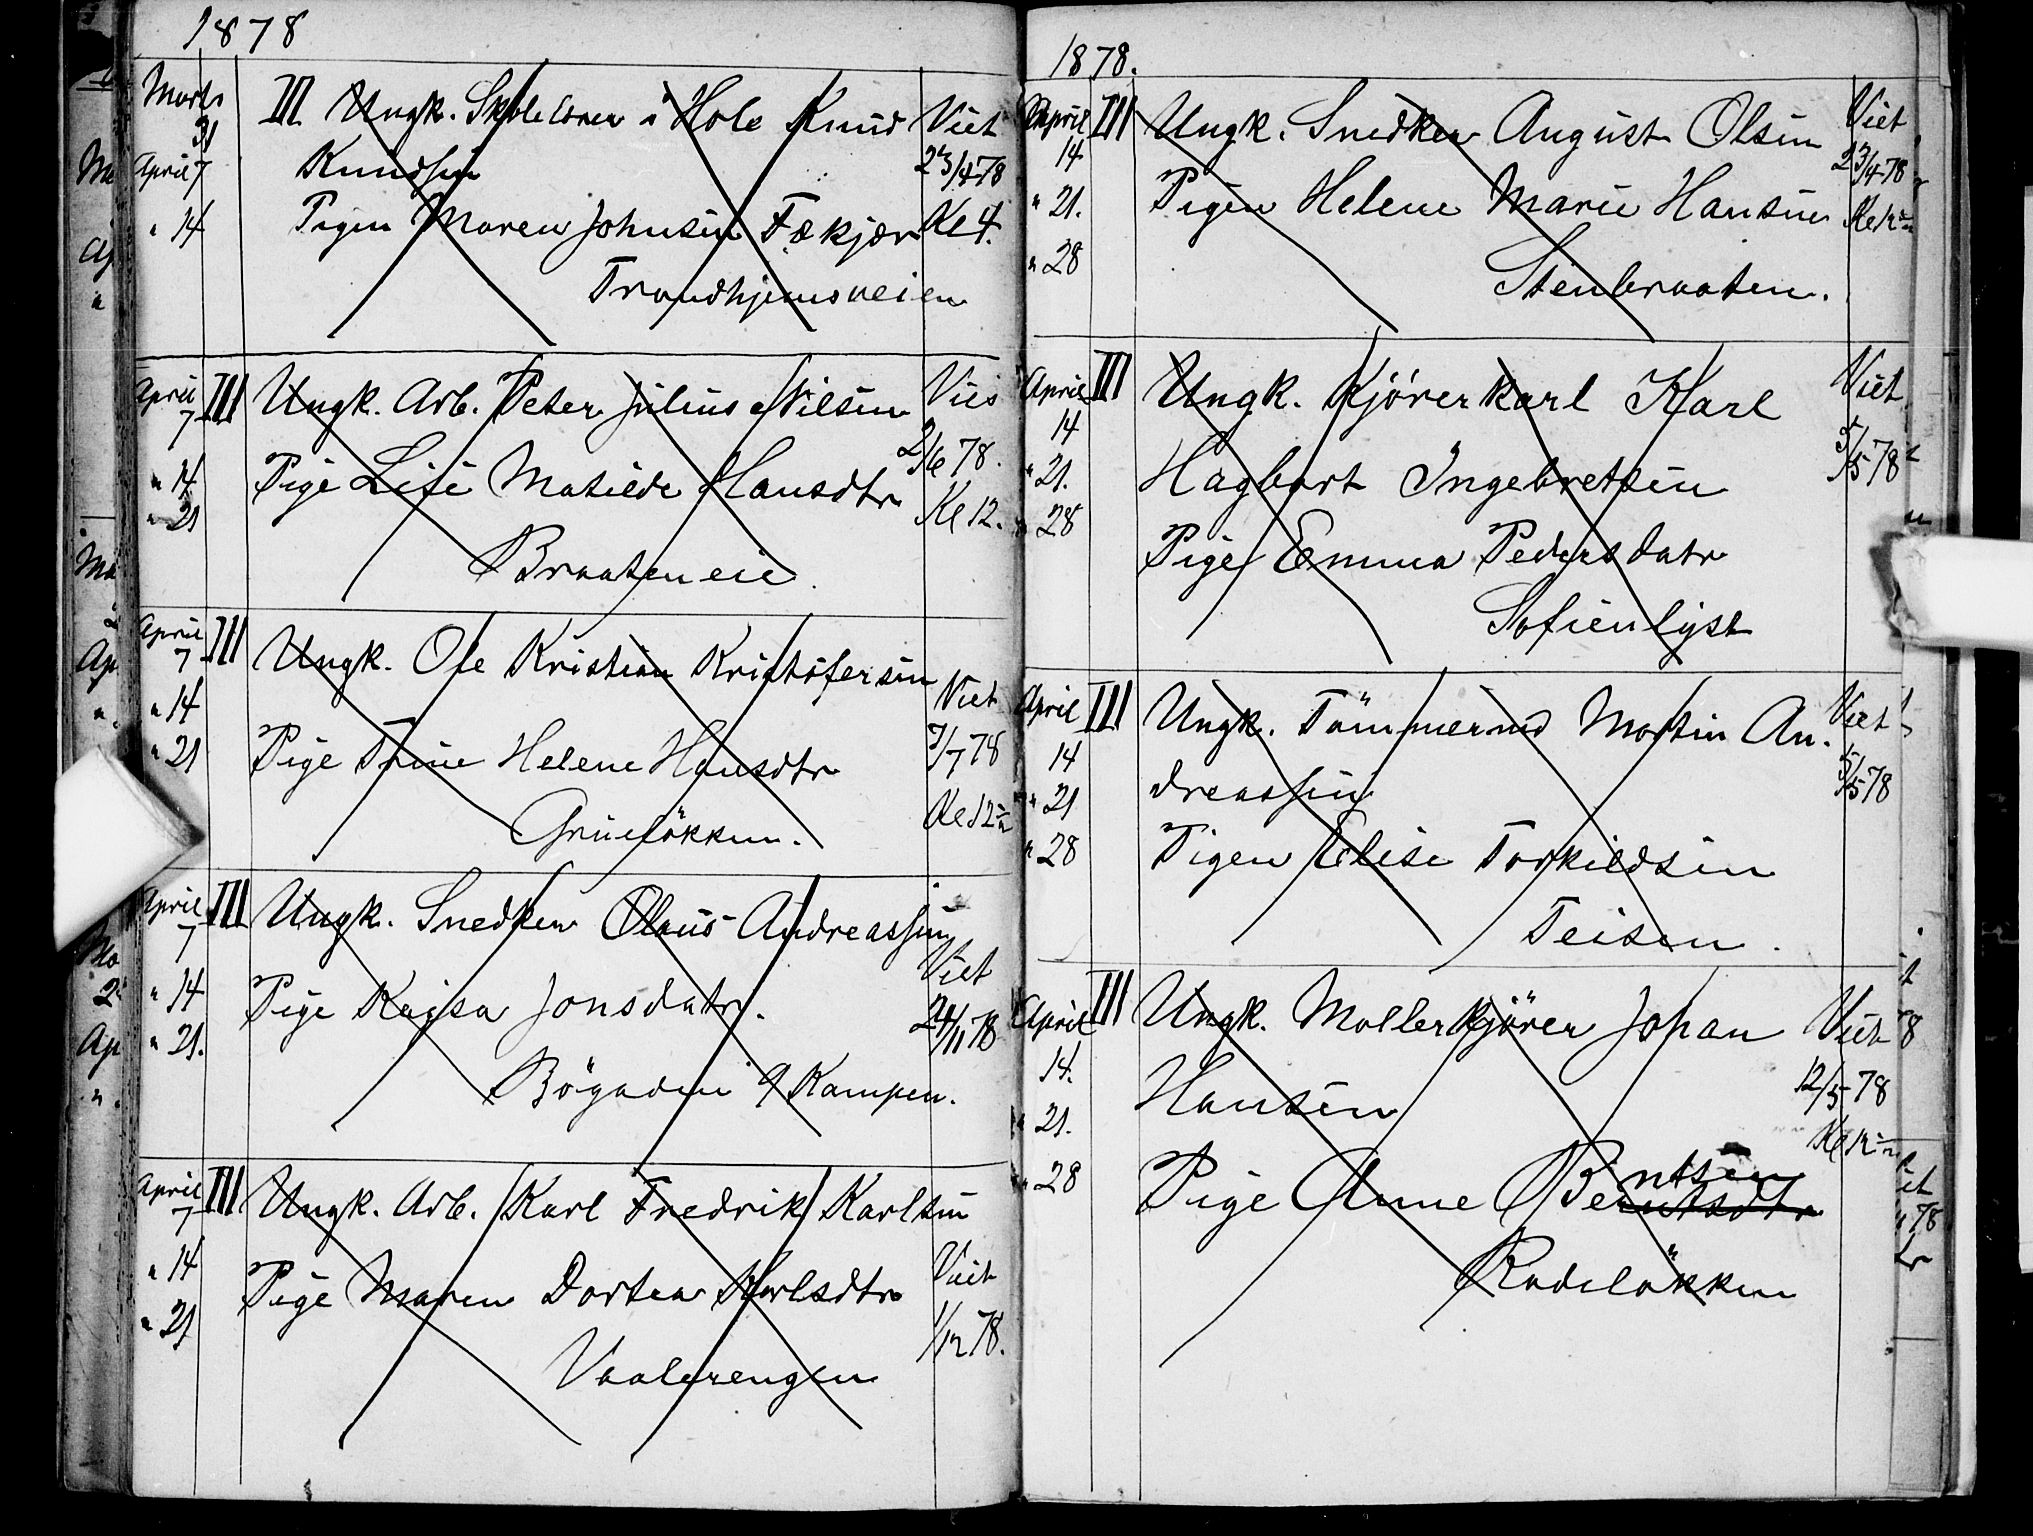 1878
Marts 31 III Ungk. Skolelærer i Hole Knud Viet
April 7 Knudsen 23/4 78
" 14 Pigen Maren Johnsen Fækjær Kl 4.
Trondhjemsveien
April 7 III Ungk. Arb. Peter Julius Nilsen Viet
" 14 Pige Lise Matilde Hansdtr 2/6 78.
" 21 Braateneie. Kl 12.
April 7 III Ungk. Ole Kristian Kristofersen Viet
" 14 7/7 78
" 21 Pige Trine Helene Hansdtr
Grüneløkken. Kl 12
April 7 III Ungk. Snedker Olaus Andreassen Viet
" 14 Pige Kajsa Jonsdatr. 24/11 78
" 21. Bögaden 9 Kampen.
April 7 III Ungk. Arb. Karl Fredrik Karlsen
" 14 Pige Maren Dortea Karlsdtr Viet
" 21 Vaalerengen 1/12 78.
1878.
April 14 III Ungk. Snedker August Olsen Viet
" 21. Pigen Helene Marie Hansen 23/4 78
" 28 Stenbraaten.
April 14 III Ungk. Kjørerkarl Karl Viet
" 21. Hagbart Ingebretsen 5/5 78
" 28 Pige Emma Pedersdatr
Sofienlyst
April III Ungk. Tömmermd Martin An- Viet
14 dreassen 5/5 78
" 21
" 28 Pigen Elise Torkildsen
Teisen.
April III Ungk. Møllerkjörer Johan Viet
14. Hansen 12/5 78
" 21. Kl 12
" 28 Pige Anne Berntsdtr ntsen
Rodelökken